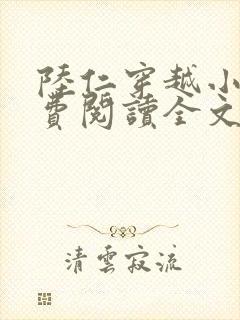 陸仁穿越小
費閱讀全文
清雲寂流